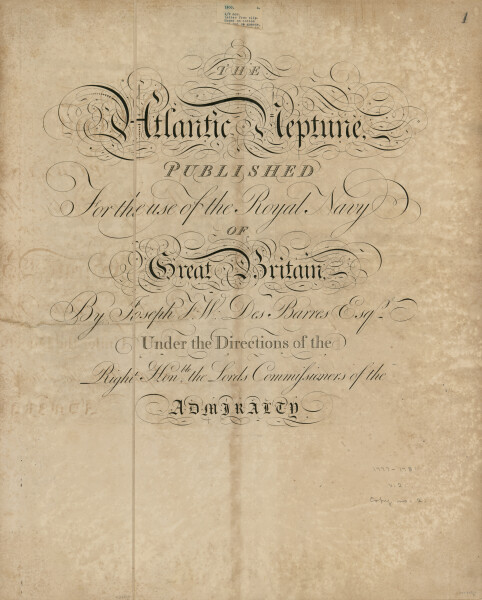 1
THE
Atlantic Neptune.
PUBLISHED
For the use of the Royal Navy
OF
Great Britain,
By Joseph F. W. Des Barres Esqr.
Under the Directions of the
Right Honble. the Lords Commiſsioners of the
ADMIRALTY